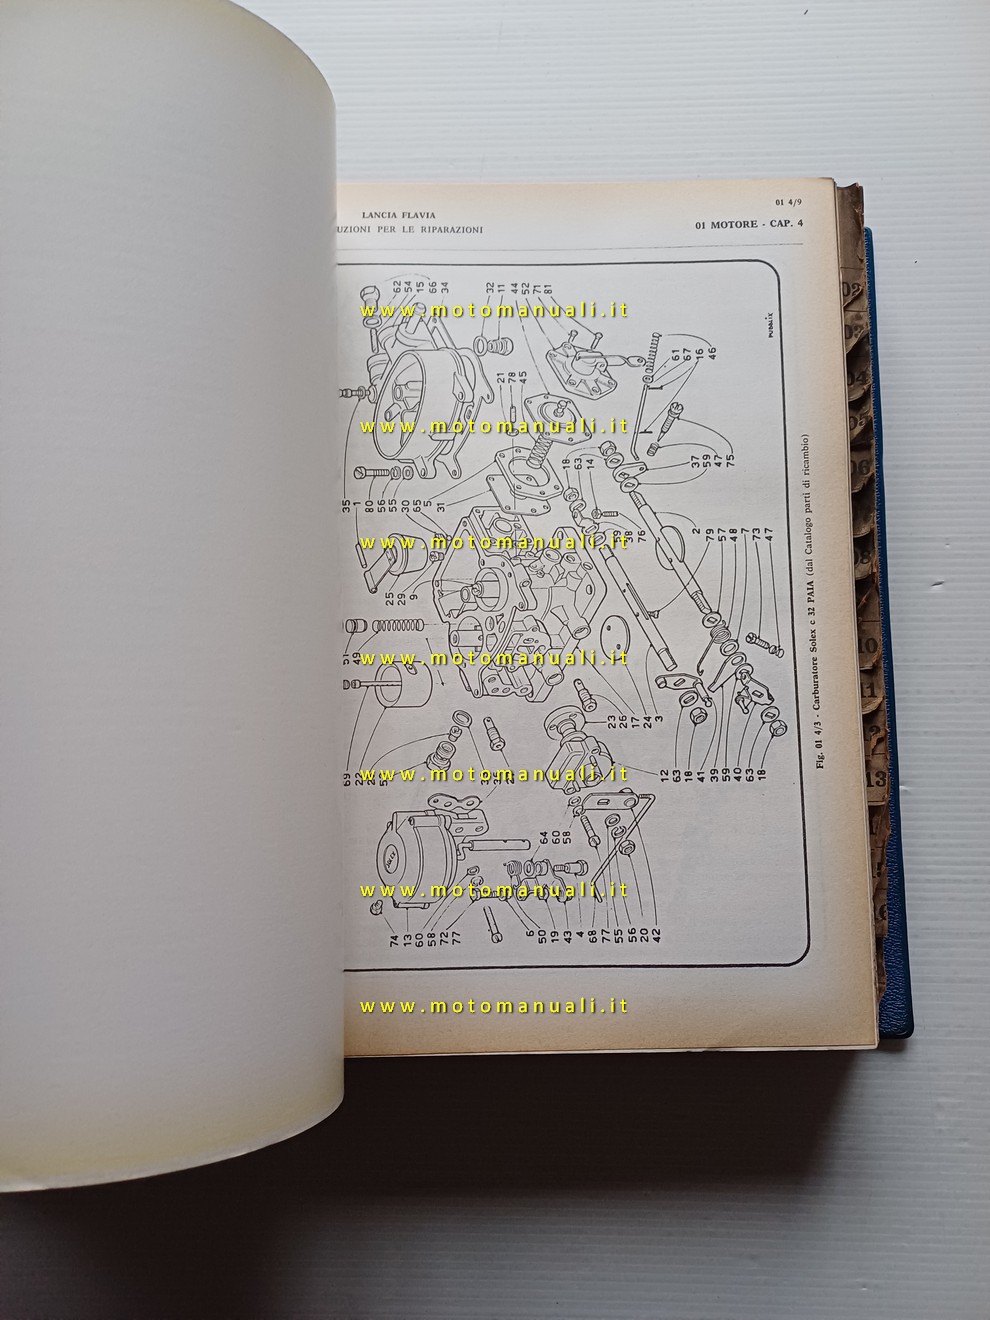 01 4/9
LANCIA FLAVIA
UZIONI PER LE RIPARAZIONI
01 MOTORE - CAP. 4
62 54 15 66 34
32 11 44 52 71 81
www.motomanuali.it
61 67 16 46
21 78 45
www.motomanuali.it
18 63 14
37 59 47 75
35 1 80 56 55 30 65 5 31
38 76
2 79 57 48 7 73 47
www.motomanuali.it
25 29 9
49
www.motomanuali.it
23 26 17 24 3
69 22
www.motomanuali.it
12 63 18 41 39 59 40 63 18
64 60 58
SOLEX
www.motomanuali.it
74 13 60 58 72 77
6 50 19 43 4 68 77 55 56 20 42
www.motomanuali.it
Fig. 01 4/3 - Carburatore Solex c 32 PAIA (dal Catalogo parti di ricambio)
02
06
10
11
13